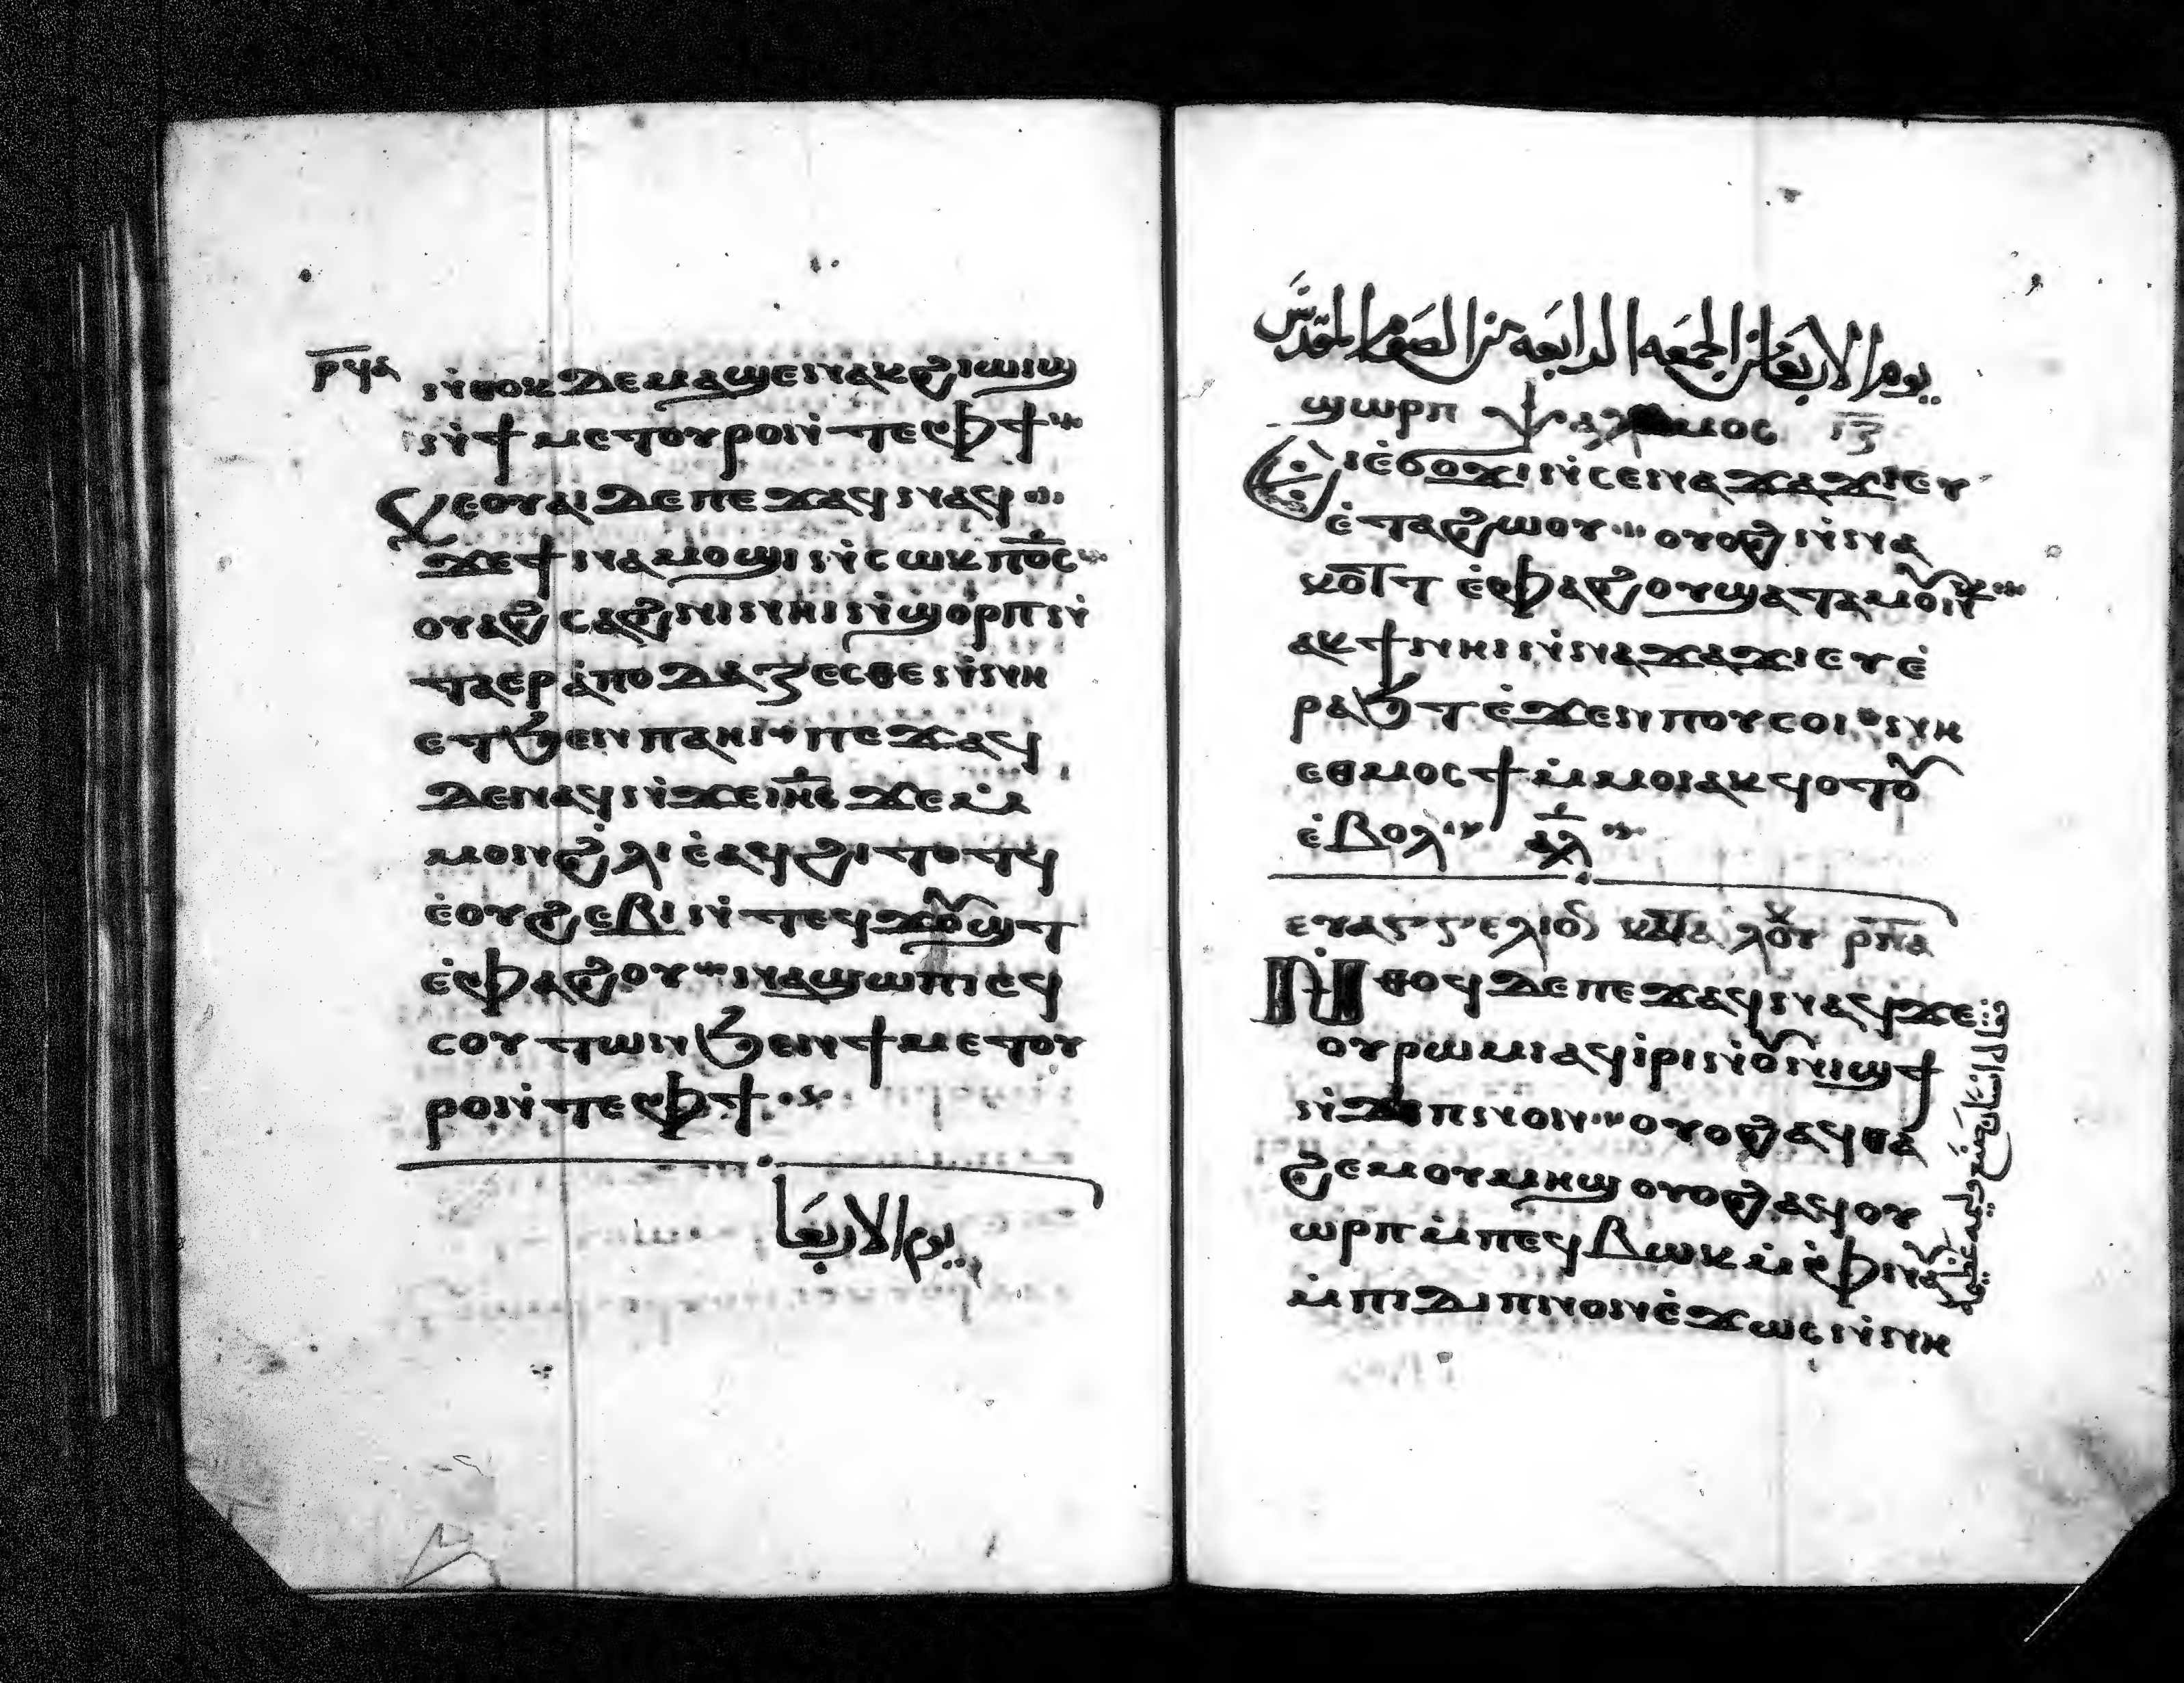 ⲣ̅ϥⲁ
ⲛ̇ⲑⲟⲕ ⲇⲉ ⲙⲁϣⲉⲛⲁⲕ ϩⲓⲱⲓϣ
ⲛ̇ϯⲙⲉⲧⲟⲩⲣⲟ ⲛ̇ⲧⲉ ⲫϯ
ⲕⲉⲟⲩⲁⲓ ⲇⲉ ⲡⲉϫⲁϥ ⲛⲁϥ
ϫⲉ ϯⲛⲁⲙⲟϣⲓ ⲛ̇ⲥⲱⲕ ⲡⲟ̅ⲥ̅
ⲟⲩⲁϩⲥⲁϩⲛⲓ ⲛⲏⲓ ⲛ̇ϣⲟⲣⲡ ⲛ̇
ⲧⲁⲉⲣⲁ̇ⲡⲟⲇⲁⲍⲉⲥⲑⲉ ⲛ̇ⲛⲏ
ⲉⲧϧⲉⲛ ⲡⲁⲏⲓ ⲡⲉϫⲁϥ
ⲇⲉ ⲛⲁϥ ⲛ̇ϫⲉ ⲓⲏ̅ⲥ̅ ϫⲉ ⲙ̇
ⲙⲟⲛ ϩ̇ⲗⲓ ⲉ̇ⲁϥϩⲓⲧⲟⲧϥ
ⲉ̇ⲟⲩϩⲉⲃⲓ ⲛ̇ⲧⲉϥϫⲟⲩϣⲧ
ⲉ̇ⲫⲁϩⲟⲩ ⲛⲁϣⲱⲡⲓ ⲉϥ
ⲥⲟⲩⲧⲱⲛ ϧⲉⲛ ϯⲙⲉⲧⲟⲩ
ⲣⲟ ⲛ̇ⲧⲉ ⲫϯ
يوم الاربعا
يوم الاربعا من الجمعه الرابعه من الصوم المقدس
ϣⲱⲣⲡ ⲯⲁⲗⲙⲟⲥ ⲓ̅ⲍ̅
ⲉⲓⲉ̇ϭⲟϫⲓ ⲛ̇ⲥⲉ ⲛⲁϫⲁϫⲓ ⲉⲩ
ⲉ̇ⲧⲁϩⲱⲟⲩ ⲟⲩⲟϩ ⲛ̇ⲛⲁ
ⲕⲟⲧⲧ ⲉ̇ⲫⲁϩⲟⲩ ϣⲁⲧⲁⲙⲟⲩⲛⲕ
ⲁⲕϯ ⲛⲏⲓ ⲛ̇ⲛⲁϫⲁϫⲓ ⲉⲩⲉ̇
ⲣⲁϧⲧ ⲉ̇ϫⲉⲛ ⲡⲟⲩⲥⲟⲓ ⲛⲏ
ⲉⲑⲙⲟⲥϯ ⲙ̇ⲙⲟⲓ ⲁⲕϥⲟⲧⲟⲩ
ⲉ̇ⲃⲟⲗ ⲁ̅ⲗ̅
ⲉⲩⲁⲅⲅⲉⲗⲓⲟⲛ ⲕⲁⲧⲁ ⲗⲟⲩ ⲣ̅ⲡ̅ⲁ
ⲛ̇ⲑⲟϥ ⲇⲉ ⲡⲉϫⲁϥ ⲛⲁϥ ϫⲉ
ⲟⲩⲣⲱⲙⲓ ⲁϥⲓ̇ⲣⲓ ⲛ̇ⲟⲩⲛⲓϣϯ
ⲛ̇ⲇⲓⲡⲛⲟⲛ ⲟⲩⲟϩ ⲁϥⲑⲁ
ϩⲉⲙ ⲟⲩⲙⲏϣ ⲟⲩⲟϩ ⲁϥⲟⲩ
ⲱⲣⲡ ⲙ̇ⲡⲉϥⲃⲱⲕ ⲙ̇ⲫⲛⲁⲩ
ⲙ̇ⲡⲓⲇⲓⲡⲛⲟⲛ ⲉ̇ϫⲱⲥ ⲛ̇ⲛⲏ
قال انسان صنع وليمه عظيمه